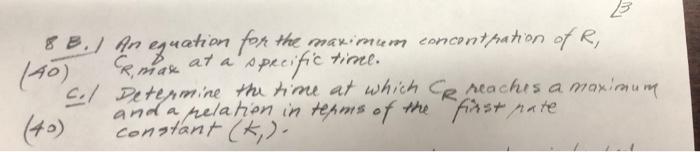 13
8 B.) An equation for the maximum concentration of R,
(40) CR,max at a specific time.
C.) Determine the time at which CR reaches a maximum
and a relation in terms of the first rate
(40) constant (K₁).